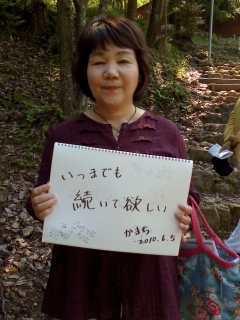 いつまでも
続いて欲しい
かまち
2010.6.5